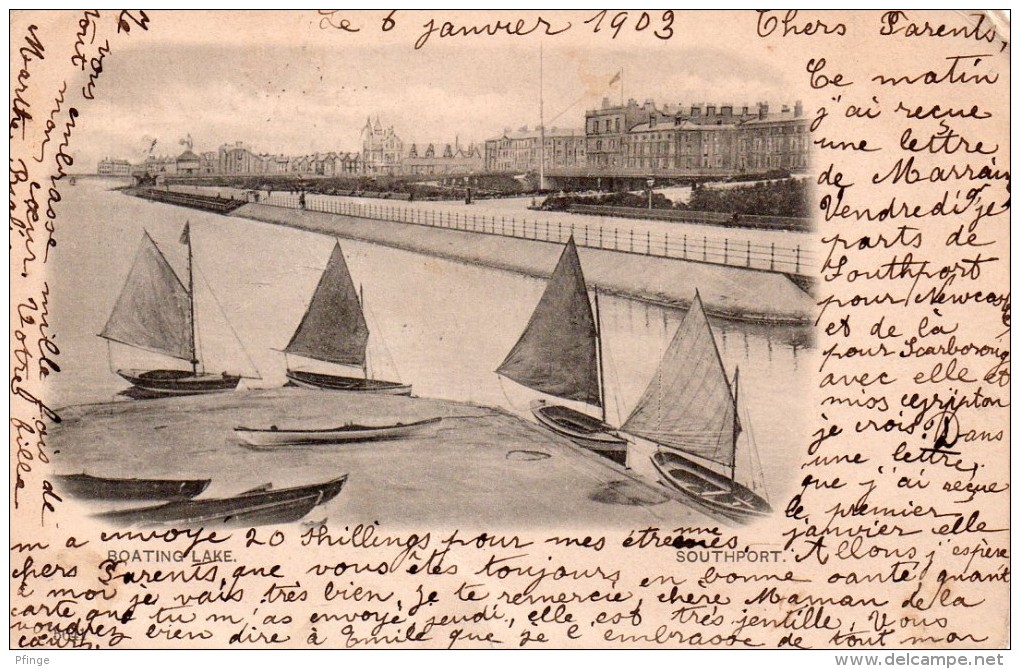 Le 6 janvier 1903
Chers Parents,
Ce matin
j'ai reçue
une lettre
de Marraine
Vendredi je
parts de
Southport
pour Newcas
et de là
pour Scarboroug
avec elle et
miss
je crois. Dans
une lettre,
que j'ai reçue
le premier
janvier elle
m'a envoyé 20 shillings pour mes étrennes,
Allons j'espère
BOATING LAKE.
SOUTHPORT.
chers Parents, que vous êtes toujours en bonne santé quant
à moi je vais très bien, je te remercie, chère Maman de la
carte que tu m'as envoyé jeudi, elle est très jentille, Vous
voudrez bien dire à Emile que je l'embrasse de tout mon
cœur.
5021
Je vous embrasse mille fois de
tout mon cœur, Votre fille
Marthe
Pfinge
delcampe.net